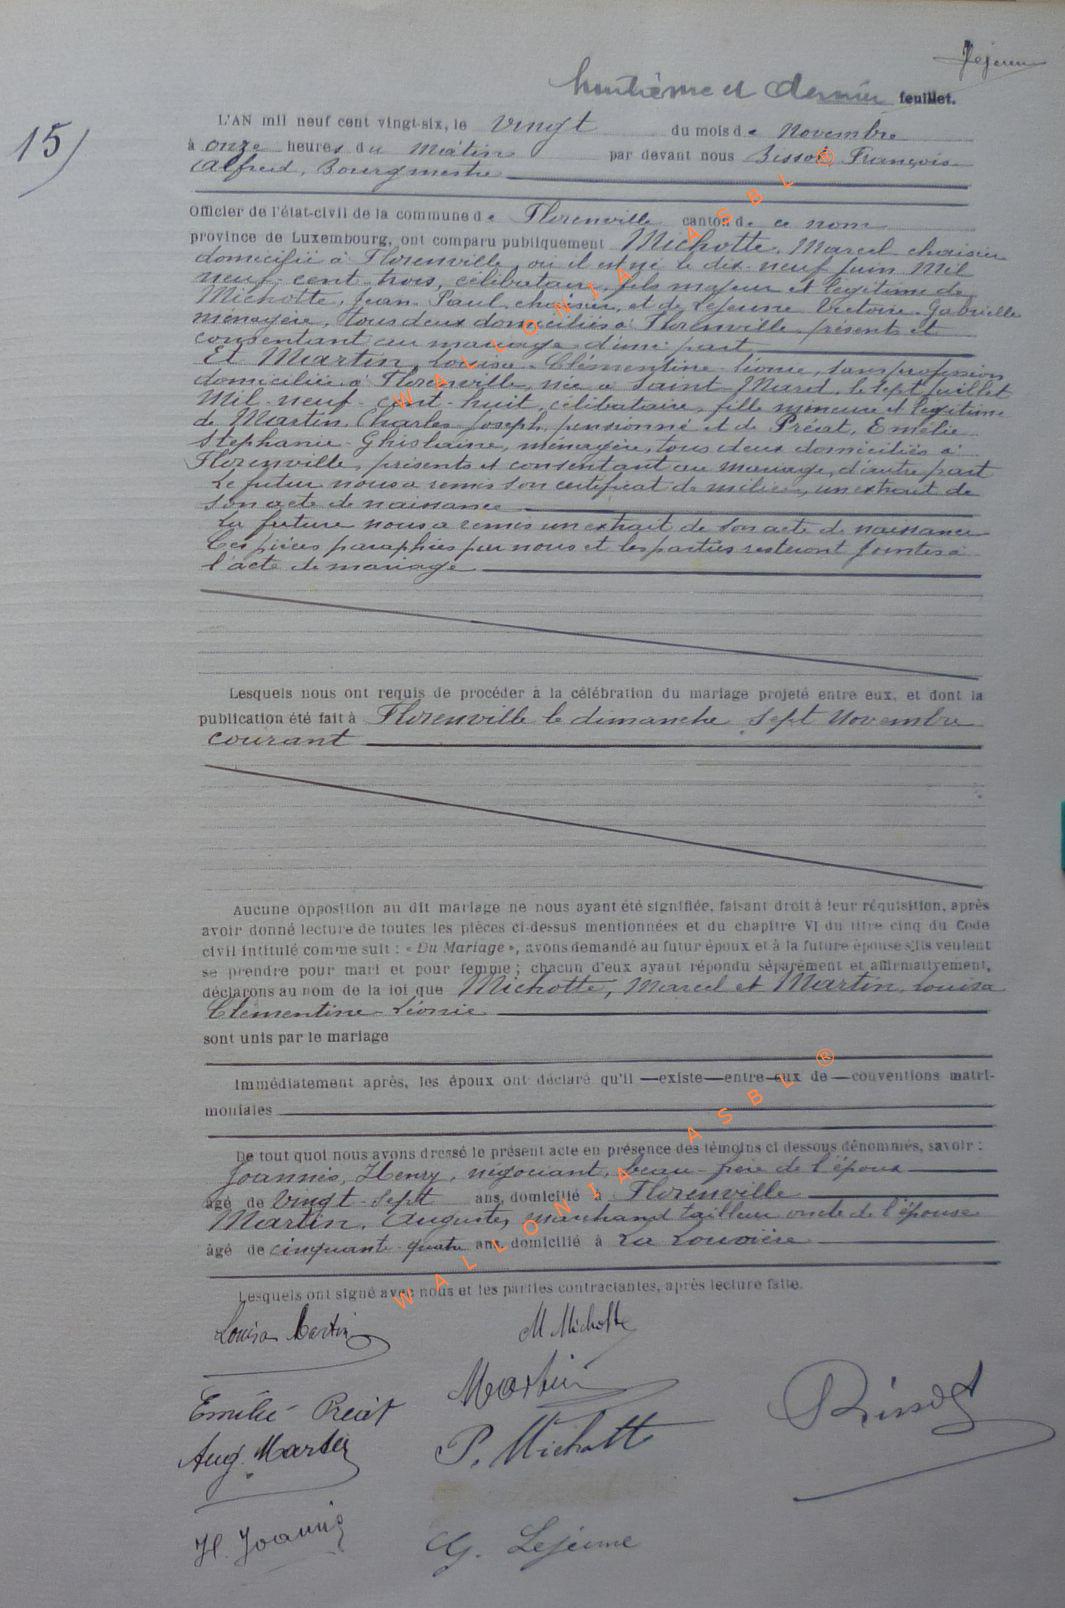 Lejeune
huitième et dernier feuillet.
15)
L'AN mil neuf cent vingt-six, le vingt du mois de Novembre
à onze heures du matin par devant nous Bissot, François
Alfred, Bourgmestre
Officier de l'état-civil de la commune de Florenville canton de ce nom
province de Luxembourg, ont comparu publiquement Michotte, Marcel choisier
domicilié à Florenville, où il est né le dix-neuf Juin Mil
neuf cent trois, célibataire, fils majeur et légitime de
Michotte, Jean Paul choisier, et de Lejeune Victoire Gabrielle
ménagère, tous deux domiciliés à Florenville, présents et
consentant au mariage d'une part
Et Martin, Louisa-Clémentine-Léonie, sans profession
domiciliée à Florenville, née à Saint-Mard, le sept Juillet
Mil-neuf-cent-huit, célibataire, fille mineure et légitime
de Martin, Charles Joseph, pensionné et de Préat, Emélie
Stéphanie-Ghislaine, ménagère, tous deux domiciliés à
Florenville, présents et consentant au mariage, d'autre part
Le futur nous a remis son certificat de milice, un extrait de
son acte de naissance
La future nous a remis un extrait de son acte de naissance
Ces pièces paraphées par nous et les parties resteront jointes à
l'acte de mariage
Lesquels nous ont requis de procéder à la célébration du mariage projeté entre eux, et dont la
publication été fait à Florenville le dimanche sept Novembre
courant
Aucune opposition au dit mariage ne nous ayant été signifiée, faisant droit à leur réquisition, après
avoir donné lecture de toutes les pièces ci-dessus mentionnées et du chapitre VI du titre cinq du Code
civil intitulé comme suit : « Du Mariage », avons demandé au futur époux et à la future épouse s'ils veulent
se prendre pour mari et pour femme ; chacun d'eux ayant répondu séparément et affirmativement,
déclarons au nom de la loi que Michotte, Marcel et Martin, Louisa
Clémentine-Léonie
sont unis par le mariage
Immédiatement après, les époux ont déclaré qu'il existe entre eux de conventions matri-
moniales
De tout quoi nous avons dressé le présent acte en présence des témoins ci dessous dénommés, savoir :
Joannis, Henry, négociant, beau-frère de l'époux
âgé de vingt-sept ans, domicilié à Florenville
Martin, Auguste, marchand tailleur oncle de l'épouse
âgé de cinquante-quatre ans, domicilié à La Louvière
Lesquels ont signé avec nous et les parties contractantes, après lecture faite.
Louisa Martin M Michotte
Martin
Emélie Préat Bissot
Aug. Martin P. Michotte
H. Joannis G. Lejeune
WALLONIA ASBL ®
WALLONIA ASBL ®